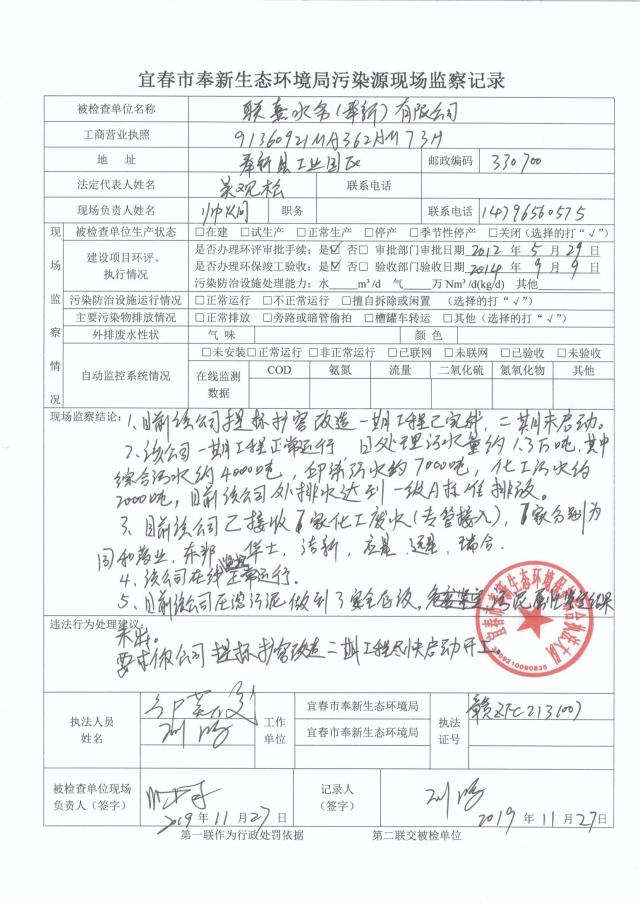 宜春市奉新生态环境局污染源现场监察记录
被检查单位名称 联熹水务(奉新)有限公司
工商营业执照 91360921MA362AM73H
地 址 奉新县工业园区 邮政编码 330700
法定代表人姓名 吴观松 联系电话
现场负责人姓名 职务 联系电话 14796560575
现场监察情况
被检查单位生产状态 □在建 □试生产 □正常生产 □停产 □季节性停产 □关闭(选择的打“√”)
建设项目环评、执行情况
是否办理环评审批手续:是☑ 否□ 审批部门审批日期 2012 年 5 月 29 日
是否办理环保竣工验收:是☑ 否□ 验收部门验收日期 2014 年 9 月 9 日
污染防治设施处理能力:水 m³/d 气 万 Nm³/d(kg/d) 其他
污染防治设施运行情况 □正常运行 □不正常运行 □擅自拆除或闲置 (选择的打“√”)
主要污染物排放情况 □正常排放 □旁路或暗管偷拍 □槽罐车转运 □其他(选择的打“√”)
外排废水性状 气 味 颜 色
自动监控系统情况 □未安装□正常运行 □非正常运行 □已联网 □未联网 □已验收 □未验收
在线监测数据 COD 氨氮 流量 二氧化硫 氮氧化物 其他
现场监察结论:1、目前该公司提标扩容改造一期工程已完成,二期未启动。
2、该公司一期工程正常运行 日处理污水量约1.3万吨,其中
综合污水约4000吨,印染污水约7000吨,化工污水约
2000吨,目前该公司外排水达到一级A标准排放。
3、目前该公司已接收7家化工废水(专管接入),7家分别为
同和药业,东邦,华士,洁新,应是,远星,瑞合.
4、该公司在线监测正常运行。
5、目前该公司压滤污泥做到了安全存放,
违法行为处理建议:
要求你公司提标扩容改造二期工程尽快启动开工
宜春市奉新生态环境保护综合执法大队
执法人员姓名 刘 工作单位 宜春市奉新生态环境局 执法证号 赣ZFC2131007
宜春市奉新生态环境局
被检查单位现场负责人(签字) 2019 年 11 月 27 日
记录人(签字) 2019 年 11 月 27 日
第一联作为行政处罚依据 第二联交被检单位